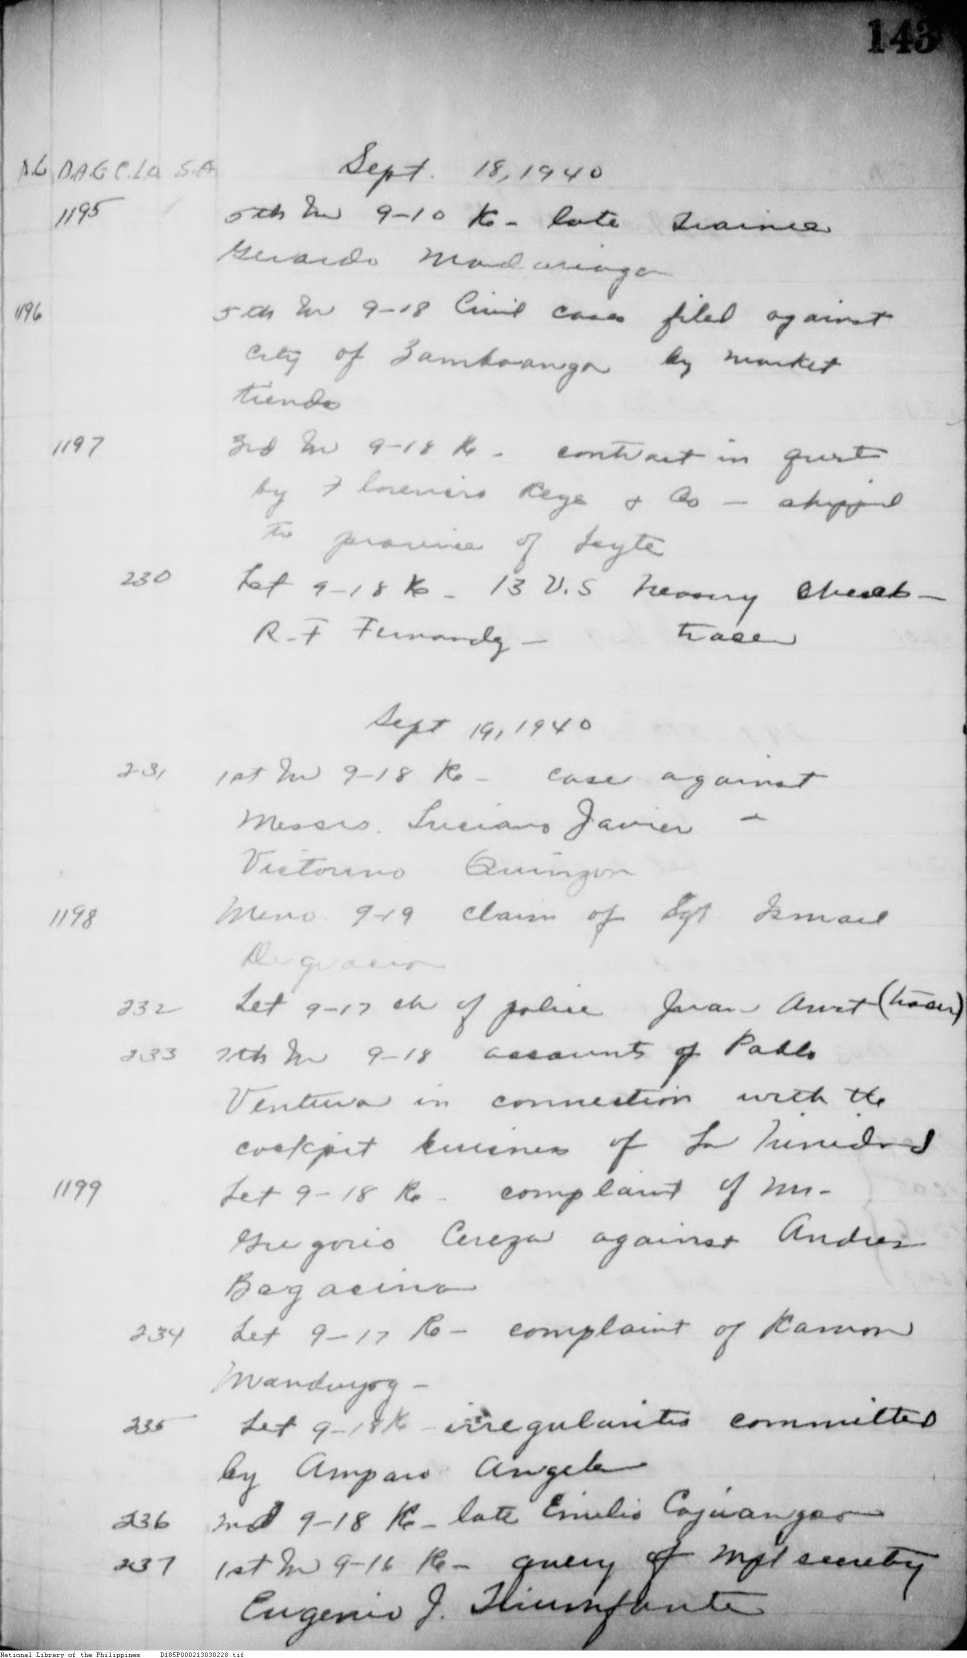 143
A.G D.A.G C.LO S.A
Sept. 18, 1940
1195 5th In 9-10 Re - late trainee
Gerardo Madariaga
1196 5th In 9-18 Civil cases filed against
City of Zamboanga by market
tienda
1197 3rd In 9-18 Re - contract in
by Florencio Reyes & Co - shipped
the province of Leyte
230 Let 9-18 Re - 13 U.S Treasury Checks -
R.F Fernandez - tracer
Sept 19, 1940
231 1st In 9-18 Re - case against
Messrs. Luciano Javier -
Victorino Quinzon
1198 Memo 9-19 claim of Sgt Ismael
Degracia
232 Let 9-17 ch of police Juan (tracer)
233 7th In 9-18 accounts of Pablo
Ventura in connection with the
cockpit business of La Trinidad
1199 Let 9-18 Re - complaint of Mr.
Gregorio Cereza against Andres
Bagacina
234 Let 9-17 Re - complaint of Ramon
Manduyog -
235 Let 9-18 Re - irregularities committed
by Amparo Angeles
236 2nd 9-18 Re - late Emilio Cojuangco
237 1st In 9-16 Re - query of Mpl secrety
Eugenio J. Triumfante
National Library of the Philippines D185P000213030228.tif